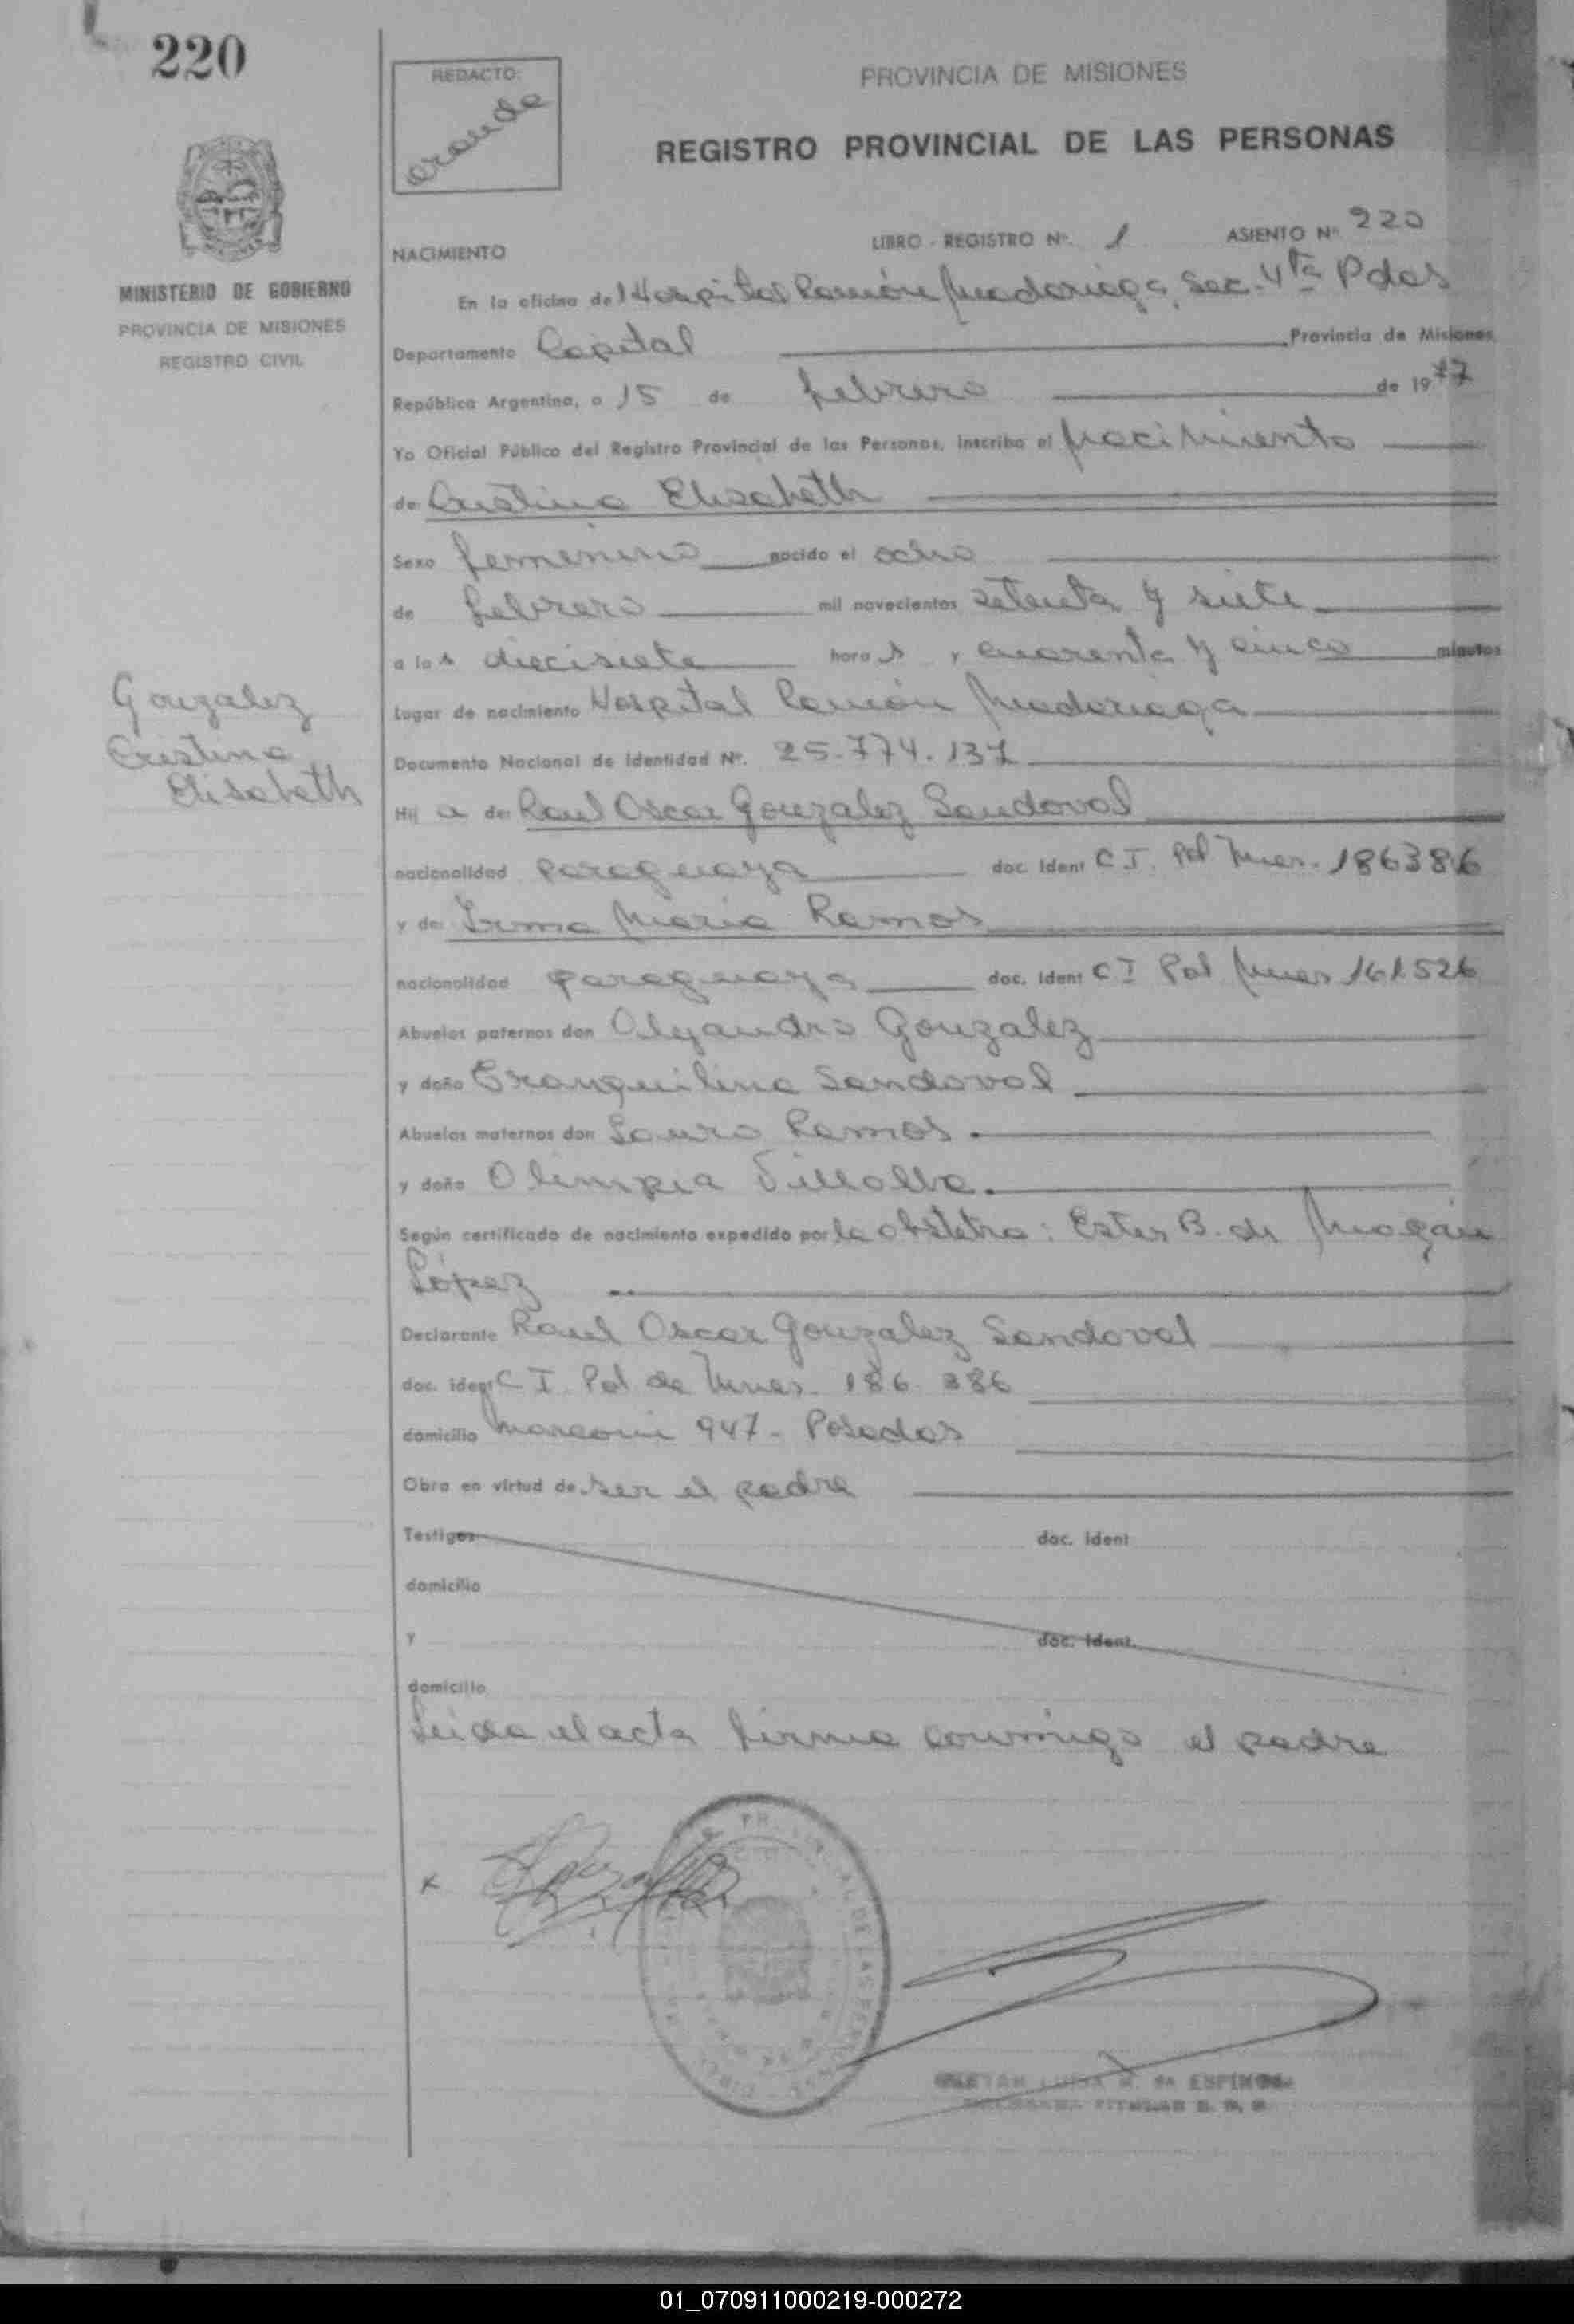 220
REDACTO:
PROVINCIA DE MISIONES
REGISTRO PROVINCIAL DE LAS PERSONAS
MINISTERIO DE GOBIERNO
PROVINCIA DE MISIONES
REGISTRO CIVIL
NACIMIENTO
LIBRO - REGISTRO Nº. 1 ASIENTO Nº 220
En la oficina del Hospital Ramón Madariaga, Sec. 4ta Pdas
Departamento Capital Provincia de Misiones,
República Argentina, a 15 de febrero de 1977
Yo Oficial Público del Registro Provincial de las Personas, inscribo el nacimiento
de: Cristina Elisabeth
Sexo femenino nacido el ocho
de febrero mil novecientos setenta y siete
a las diecisiete horas y cuarenta y cinco minutos
Lugar de nacimiento Hospital Ramón Madariaga
Gonzalez
Cristina
Elisabeth
Documento Nacional de Identidad Nº. 25.774.137
Hij a de: Raul Oscar Gonzalez Sandoval
nacionalidad paraguaya doc. Ident C I. Pol Mnes. 186386
y de: Irma Maria Ramos
nacionalidad paraguaya doc. Ident C I Pol Mnes 161.526
Abuelos paternos don Alejandro Gonzalez
y doña Tranquilina Sandoval
Abuelos maternos don Lauro Ramos
y doña Olimpia Villalba
Según certificado de nacimiento expedido por la obstetra: Ester B. de
López
Declarante Raul Oscar Gonzalez Sandoval
doc. ident C I. Pol de Mnes. 186.386
domicilio Marconi 947 - Posadas
Obra en virtud de ser el padre
Testigos doc. Ident
domicilio
y doc. Ident.
domicilio
Leida el acta firma conmigo el padre
DE LAS PERSONAS
de ESPINOSA
TITULAR
01_070911000219-000272